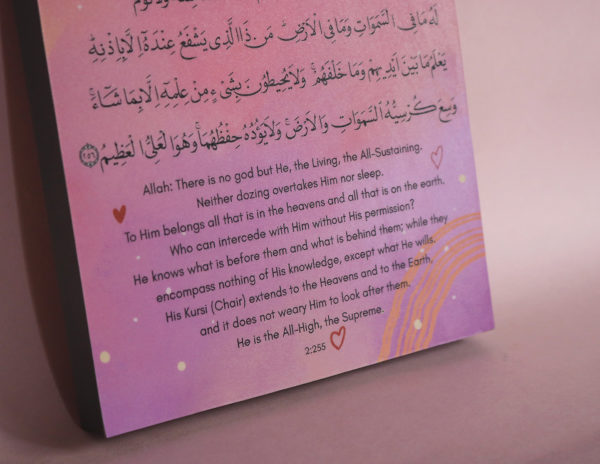 لَهُ مَا فِى السَّمٰوَاتِ وَمَا فِى الْاَرْضِ ؕ مَنْ ذَا الَّذِى يَشْفَعُ عِنْدَهٗٓ اِلَّا بِاِذْنِهٖ ؕ
يَعْلَمُ مَا بَيْنَ اَيْدِيْهِمْ وَمَا خَلْفَهُمْ ۚ وَلَا يُحِيْطُوْنَ بِشَىْءٍ مِّنْ عِلْمِهٖٓ اِلَّا بِمَا شَآءَ ۚ
وَسِعَ كُرْسِيُّهُ السَّمٰوَاتِ وَالْاَرْضَ ۚ وَلَا يَؤُدُهٗ حِفْظُهُمَا ۚ وَهُوَ الْعَلِىُّ الْعَظِيْمُ ﴿٢٥٥﴾
Allah: There is no god but He, the Living, the All-Sustaining.
Neither dozing overtakes Him nor sleep.
To Him belongs all that is in the heavens and all that is on the earth.
Who can intercede with Him without His permission?
He knows what is before them and what is behind them; while they
encompass nothing of His knowledge, except what He wills.
His Kursi (Chair) extends to the Heavens and to the Earth,
and it does not weary Him to look after them.
He is the All-High, the Supreme.
2:255